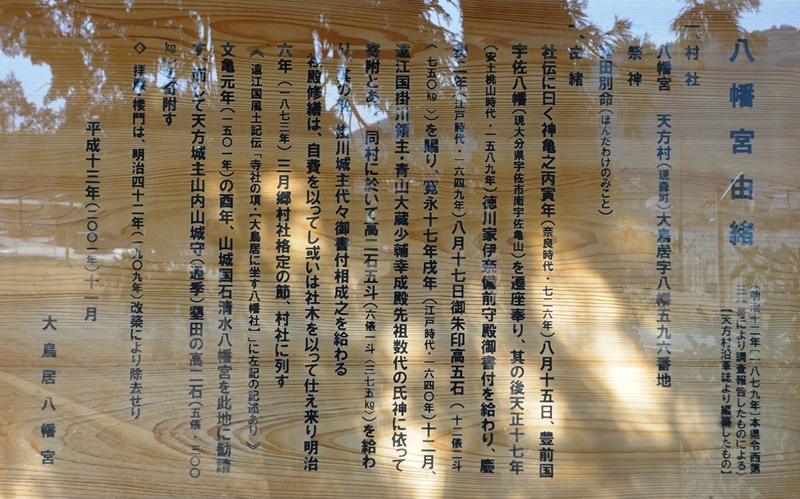 八幡宮由緒
明治十二年(一八七九年)本県令西第
号により調査報告したものによる
【天方村沿革誌より編纂したもの】
一、村社
八幡宮 天方村(現森町)大鳥居字八幡五九六番地
祭神
田別命(ほんだわけのみこと)
由緒
社伝に曰く神亀之丙寅年(奈良時代・七二六年)八月十五日、豊前国
宇佐八幡(現大分県宇佐市南宇佐亀山)を遷座奉り、其の後天正十七年
(安土桃山時代・一五八九年)徳川家伊奈備前守殿御書付を給わり、慶
安二年(江戸時代・一六四九年)八月十七日御朱印高五石(十二俵二斗
〈七五〇㎏〉)を賜り、寛永十七年戌年(江戸時代・一六四〇年)十二月、
遠江国掛川領主・青山大蔵少輔幸成殿先祖数代の氏神に依って
寄附とあり、同村に於いて高二石五斗(六俵一斗〈三七五㎏〉)を給わ
り、掛川城主代々御書付相成之を給わる
社殿修繕は、自費を以ってし或いは社木を以って仕え来り明治
六年(一八七三年)三月郷村社格定の節、村社に列す
《遠江国風土記伝「寺社の項・【大鳥居に坐す八幡社】」に左記の記述あり》
文亀元年(一五〇一年)の酉年、山城国石清水八幡宮を此地に勧請
す、而して天方城主山内山城守(通季)墾田の高二石(五俵・三〇〇
㎏)寄附す
◇ 拝殿・楼門は、明治四十二年(一九〇九年)改築により除去せり
平成十三年(二〇〇一年)十一月
大鳥居八幡宮